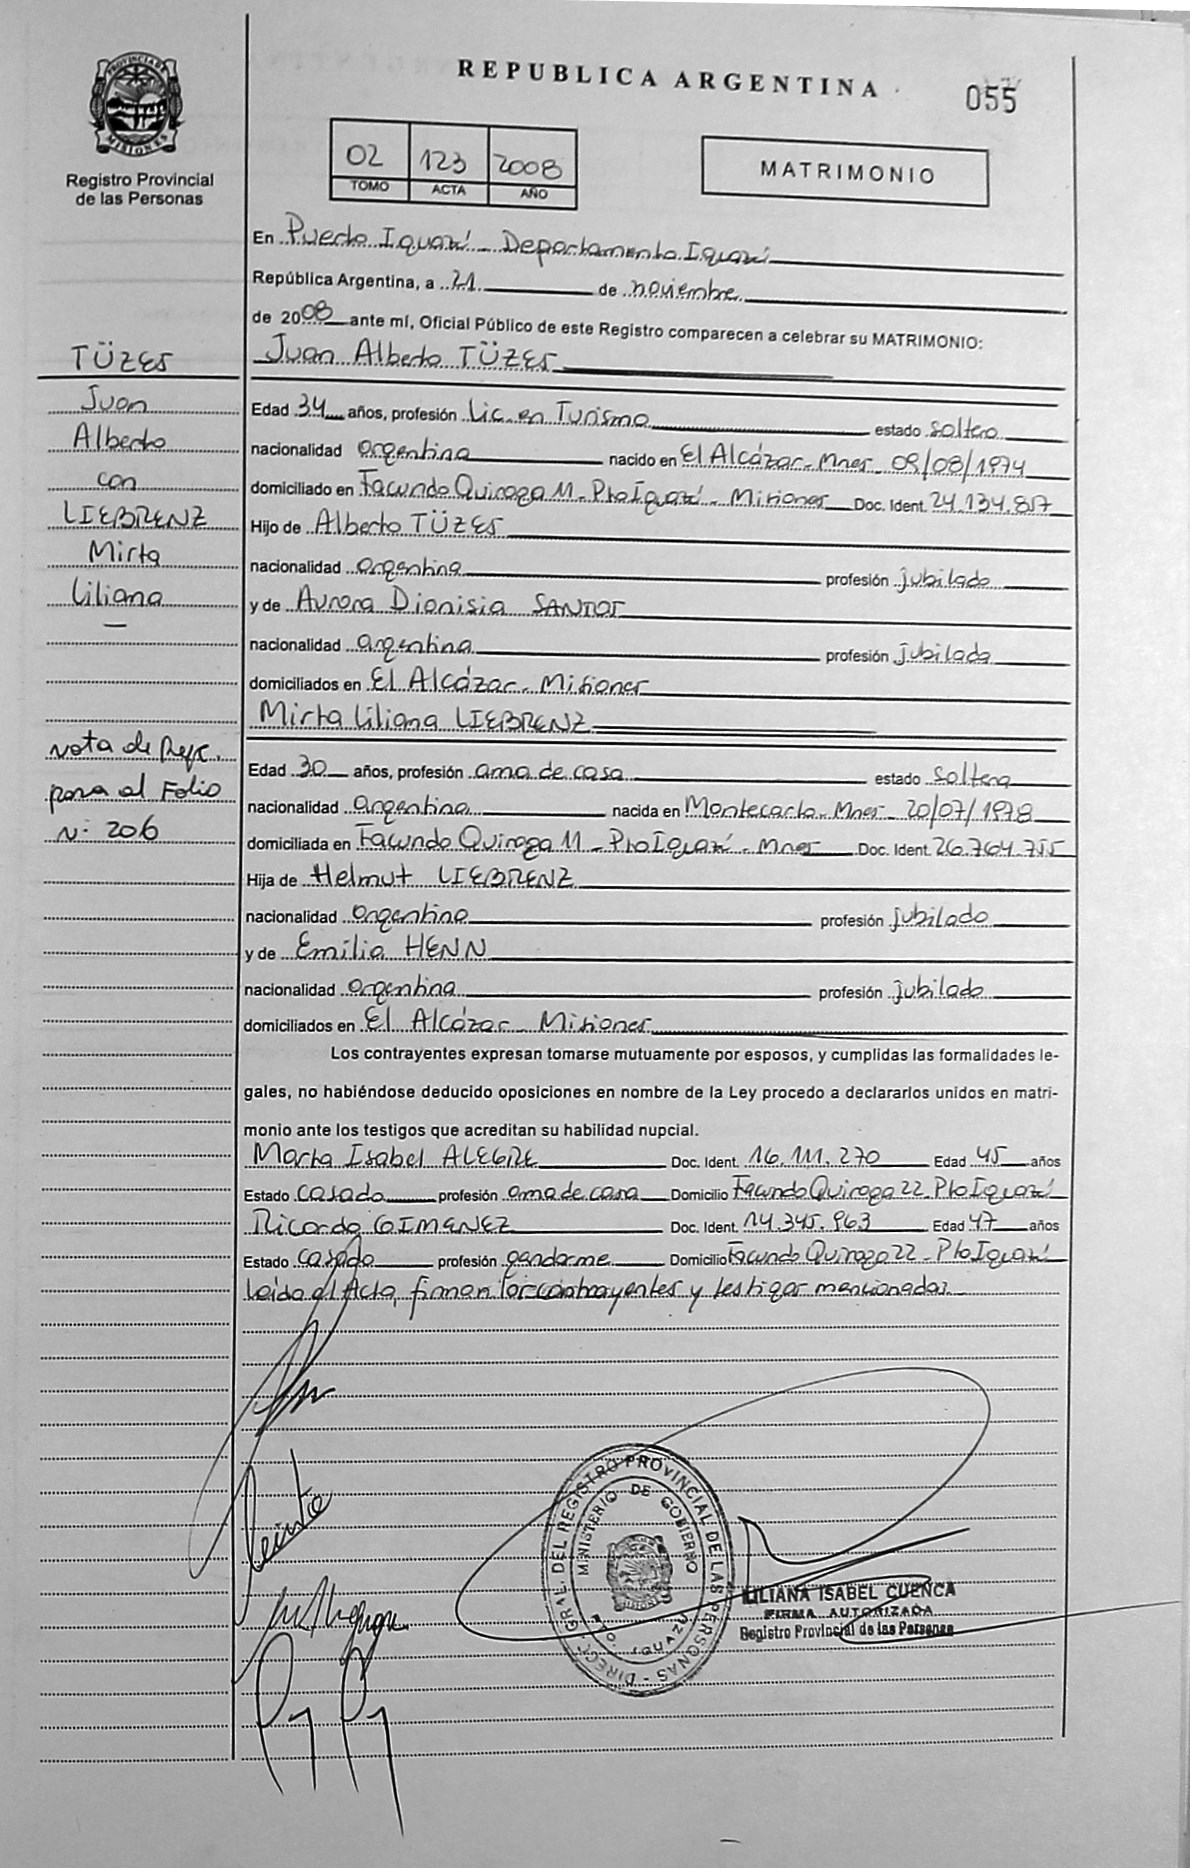 REPUBLICA ARGENTINA
055
PROVINCIA DE MISIONES
Registro Provincial
de las Personas
02 123 2008
TOMO ACTA AÑO
MATRIMONIO
En Puerto Iguazú - Departamento Iguazú
República Argentina, a 21 de noviembre
de 2008 ante mí, Oficial Público de este Registro comparecen a celebrar su MATRIMONIO:
Juan Alberto TÜZES
Edad 34 años, profesión Lic. en Turismo estado soltero
nacionalidad argentina nacido en El Alcázar - Mnes - 09/08/1974
domiciliado en Facundo Quiroga 11 - Pto Iguazú - Misiones Doc. Ident. 24.134.857
Hijo de Alberto TÜZES
nacionalidad argentina profesión jubilado
y de Aurora Dionisia SANTOS
nacionalidad argentina profesión jubilada
domiciliados en El Alcázar - Misiones
Mirta Liliana LIEBRENZ
Edad 30 años, profesión ama de casa estado soltera
nacionalidad argentina nacida en Montecarlo - Mnes - 20/07/1978
domiciliada en Facundo Quiroga 11 - Pto Iguazú - Mnes Doc. Ident. 26.764.755
Hija de Helmut LIEBRENZ
nacionalidad argentina profesión jubilado
y de Emilia HENN
nacionalidad argentina profesión jubilada
domiciliados en El Alcázar - Misiones
Los contrayentes expresan tomarse mutuamente por esposos, y cumplidas las formalidades le-
gales, no habiéndose deducido oposiciones en nombre de la Ley procedo a declararlos unidos en matri-
monio ante los testigos que acreditan su habilidad nupcial.
Marta Isabel ALEGRE Doc. Ident. 16.111.270 Edad 45 años
Estado casada profesión ama de casa Domicilio Facundo Quiroga 22 - Pto Iguazú
Ricardo GIMENEZ Doc. Ident. 14.345.963 Edad 47 años
Estado casado profesión gendarme Domicilio Facundo Quiroga 22 - Pto Iguazú
Leída el Acta, firman los contrayentes y testigos mencionados.
TÜZES
Juan
Alberto
con
LIEBRENZ
Mirta
Liliana
Nota de Refe.
para al Folio
Nº 206
DIRECC. GRAL. DEL REGISTRO PROVINCIAL DE LAS PERSONAS
MINISTERIO DE GOBIERNO
PTO. IGUAZU
LILIANA ISABEL CUENCA
FIRMA AUTORIZADA
Registro Provincial de las Personas